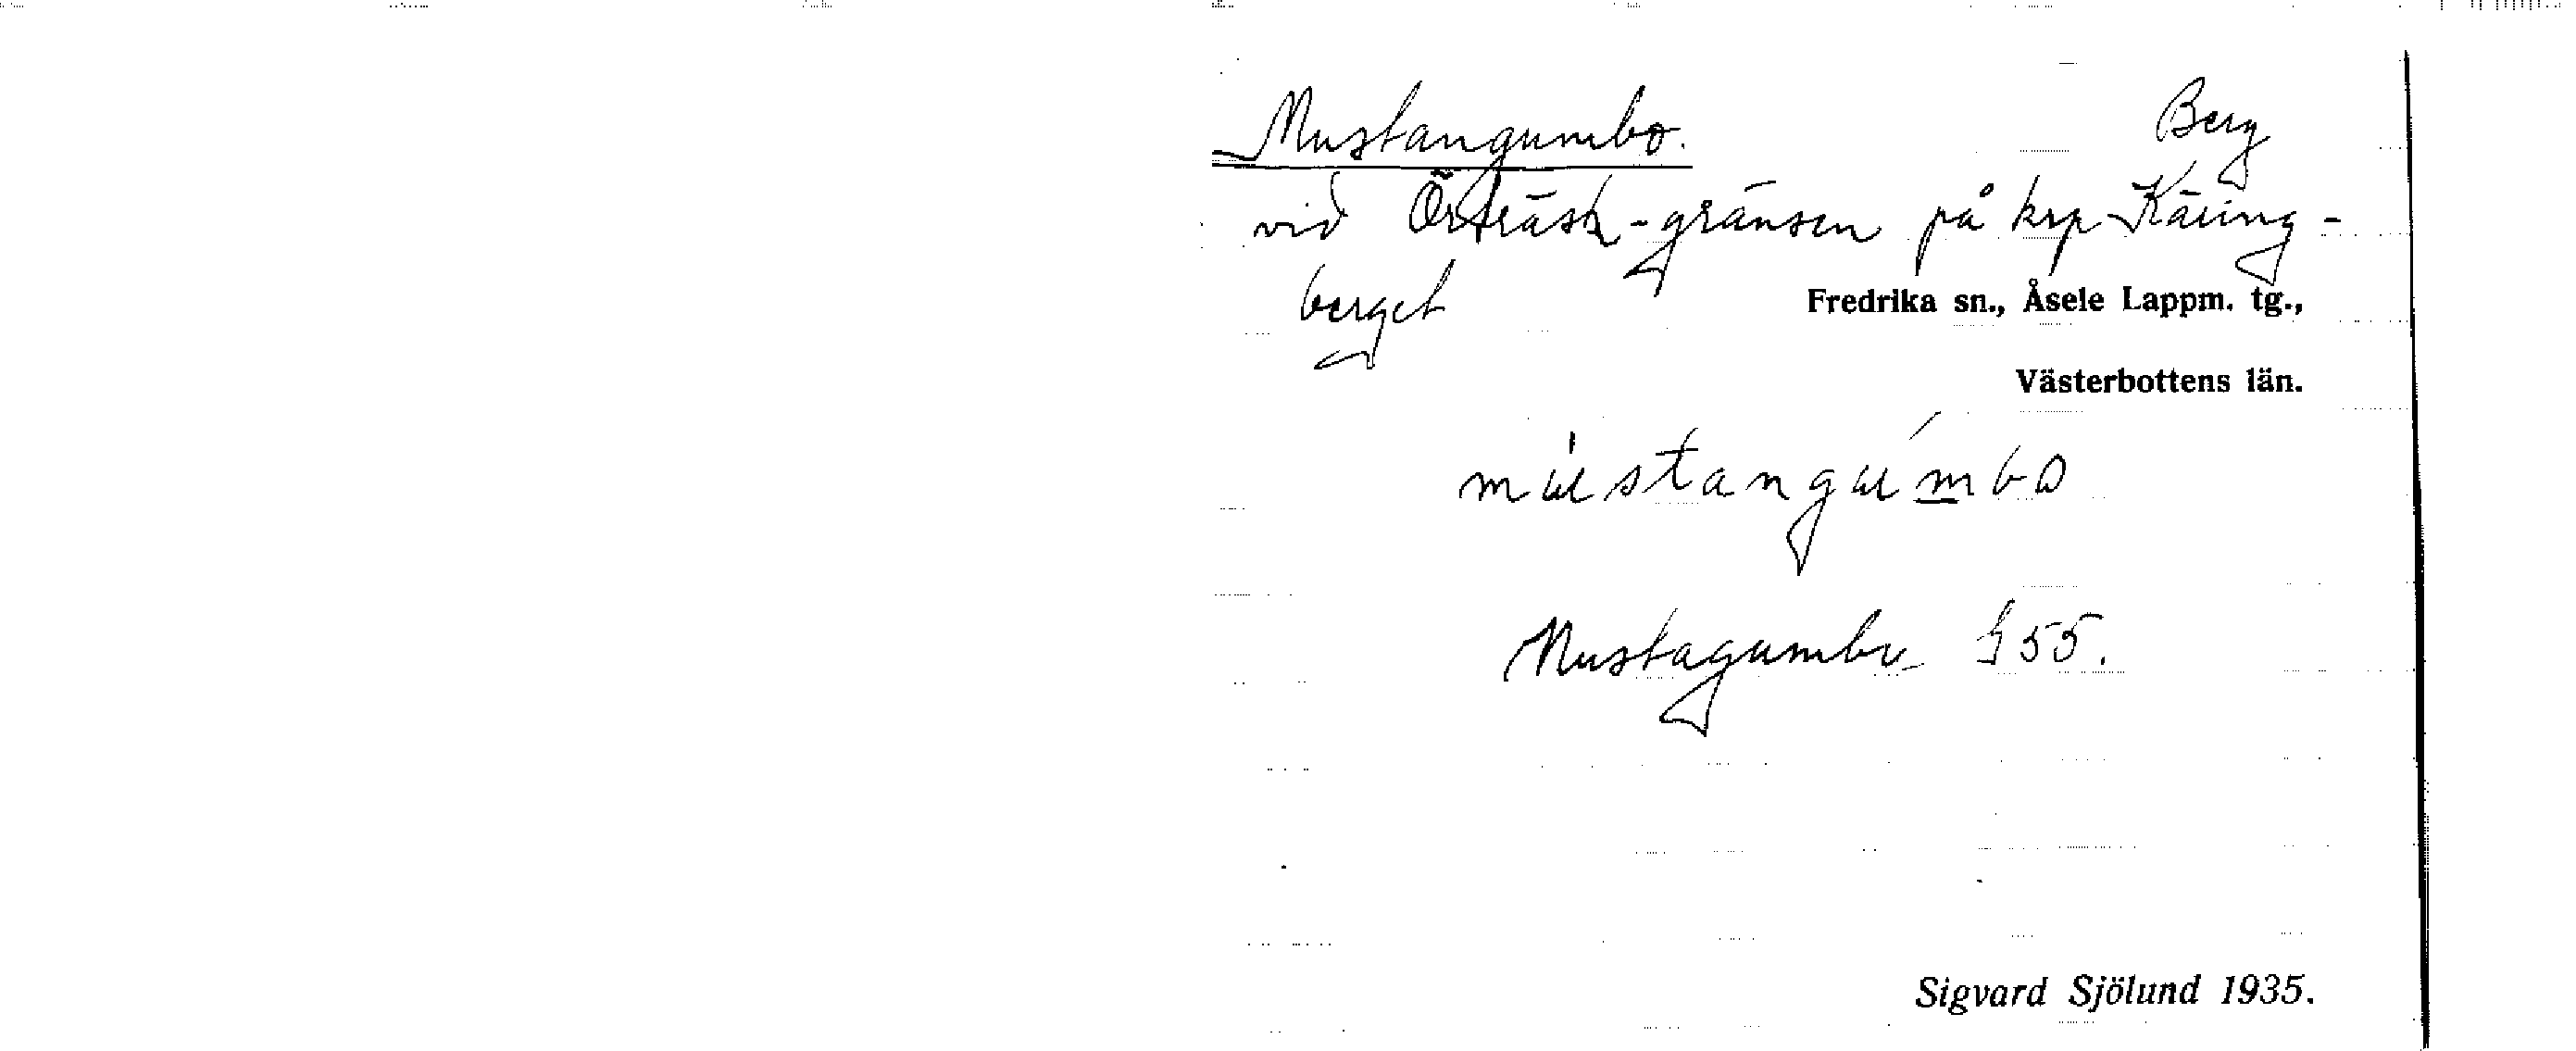 Mustangumbo. Berg
vid Örträsk-gränsen på krp Käring-
berget
Fredrika sn., Åsele Lappm. tg.,
Västerbottens län.
mustangumbo
Mustagumbo 55.
Sigvard Sjölund 1935.